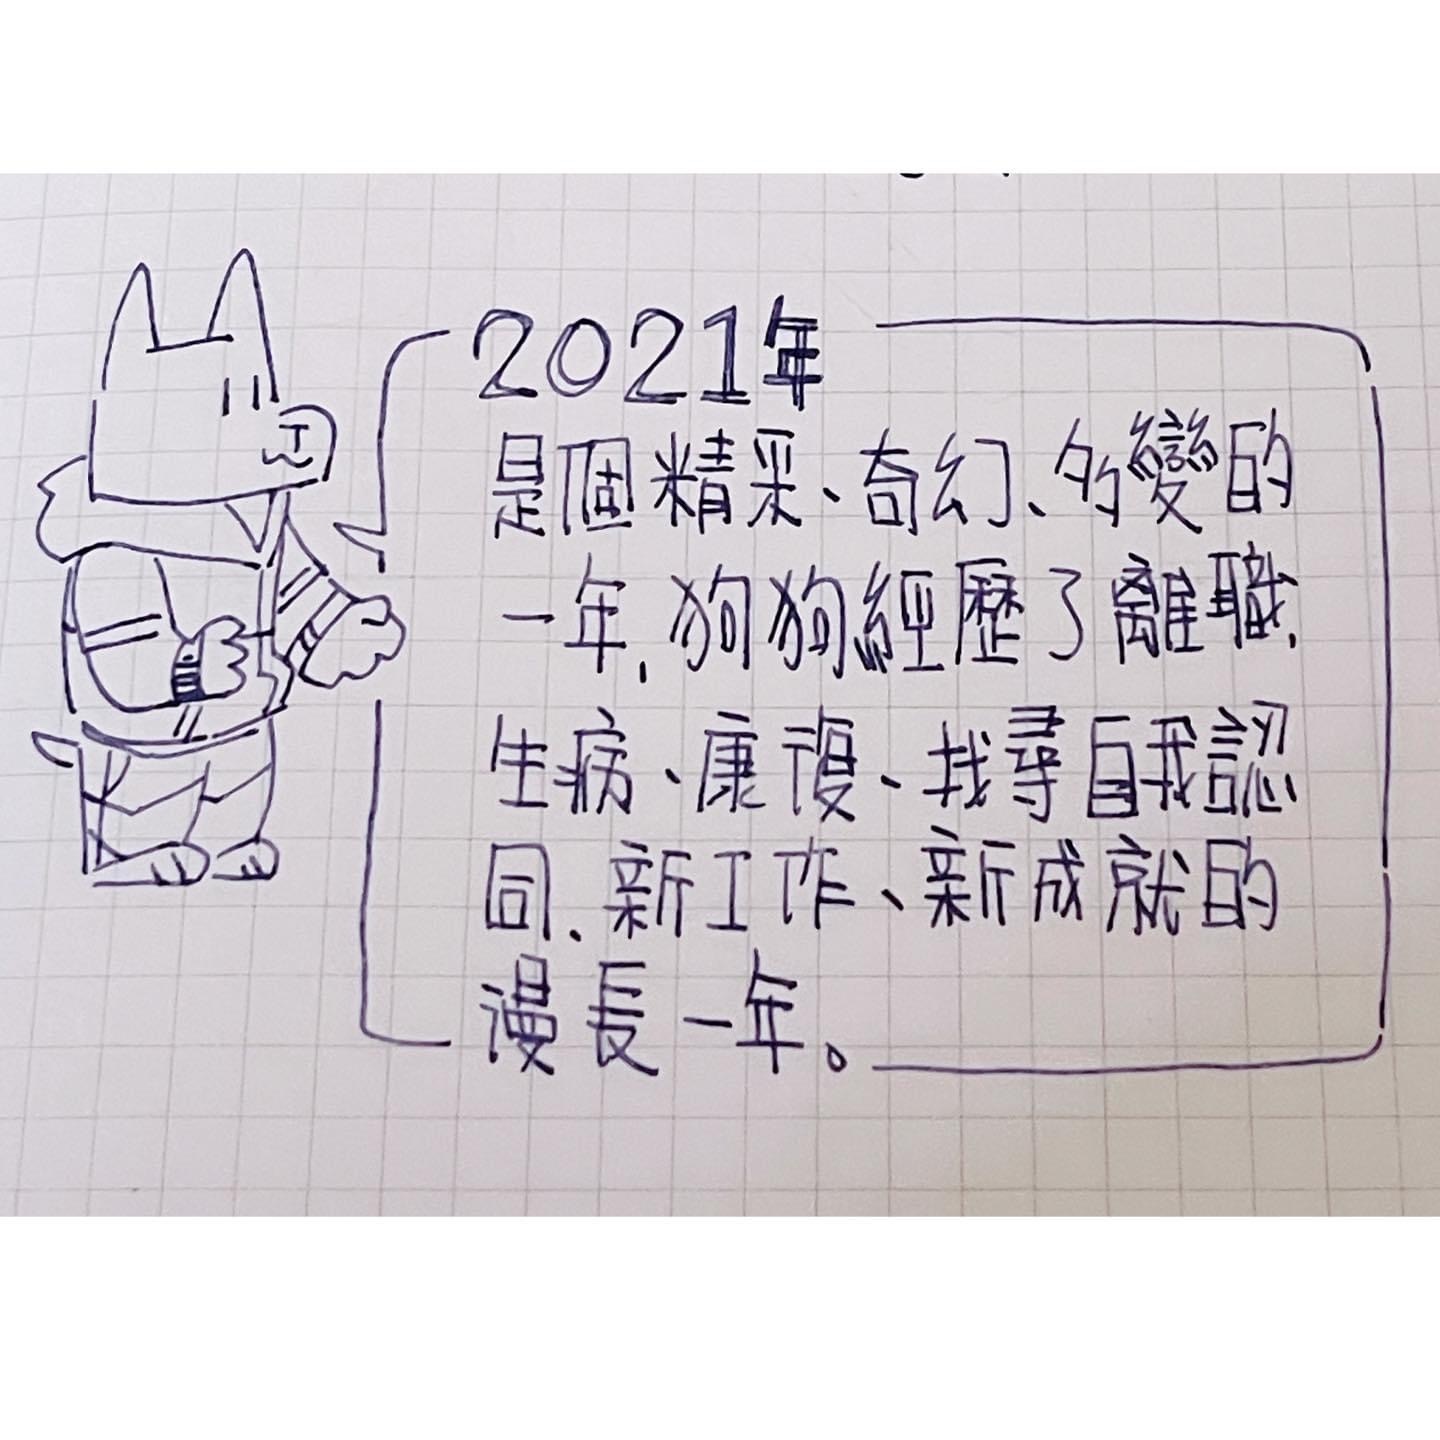 2021年
是個精采、奇幻、多變的
一年,狗狗經歷了離職、
生病、康復、找尋自我認
同、新工作、新成就的
漫長一年。